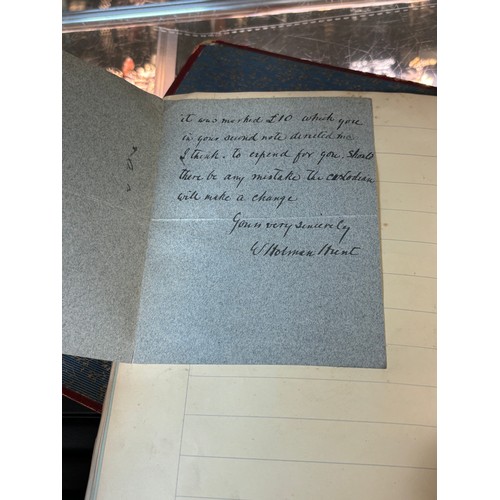 it was marked £10 which you
in your second note directed me
I think. to expend for you. Should
there be any mistake the custodian
will make a change
Yours very sincerely
W Holman Hunt